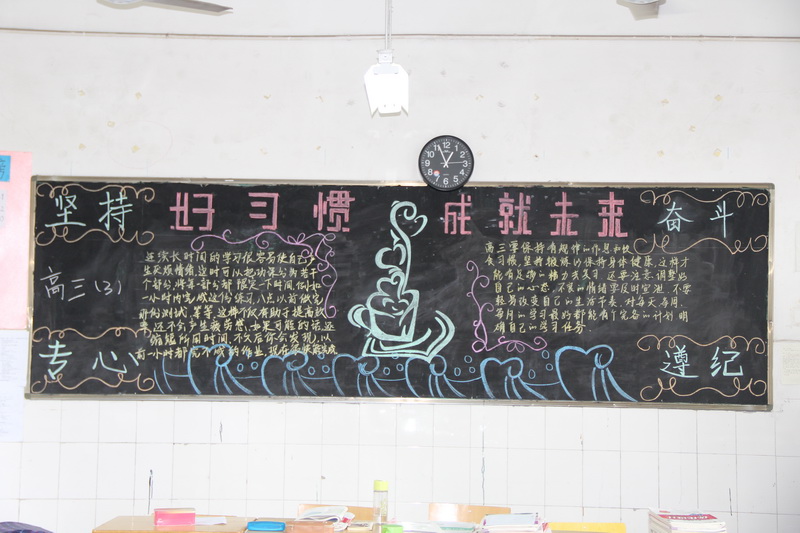 坚持
好习惯
成就未来
奋斗
高三(3)
专心
连续长时间的学习很容易使自己产
生厌烦情绪,这时可以把功课分为若干
个部分,将每一部分都限定一下时间,例如
一小时内完成这份练习,八点以前做完
那份测试,等等,这样不仅有助于提高效
率,还不会产生疲劳感.如果可能的话,逐
步缩短所用时间,不久后你会发现,以
前一小时都完不成的作业,现在很快就完成
高三要保持有规律的作息和饮
食习惯,坚持锻炼以保持身体健康,这样才
能有足够的精力来复习.还要注意,调整好
自己的心态,不良的情绪要及时宣泄.不要
轻易改变自己的生活节奏,对每天每周,
每月的学习最好都能有个完备的计划,明
确自己的学习任务.
遵纪